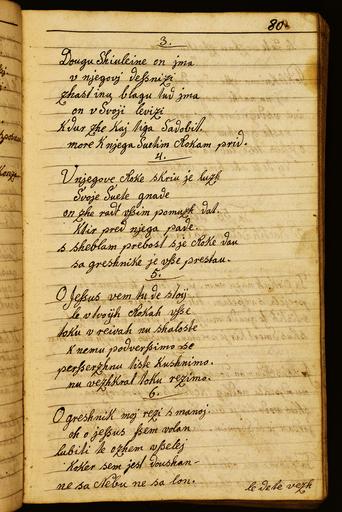 80
3.
Dougu Shiuleine on jma
v njegovj deßnizi
zhast inu blagu tud jma
on v Svoji levizi
Kdur zhe kaj tiga Sadobit.
more K njega Suetim Rokam prid.
4.
V njegove Roke skriu je luzh
Svoje Suete gnade
on zhe rad vßem pomuzh dat.
Ktir pred njega pade
s sheblam prebost sje Roke dau
sa greshnike je vße prestau.
5.
O Jeßus vem tu de stoij
le v tvojih Rokah vße
toku v reivah nu shaloste
K nemu podverßimo se
perßerzhnu tiste Kushnimo.
nu vezhkrat toku rezimo.
6.
O greshnik moj rezi s manoj
oh o jeßus ßem volan
lubiti te ozhem vßelej
Koker sem jest doushan-
ne sa Nebu ne sa lon.
le de te vezh